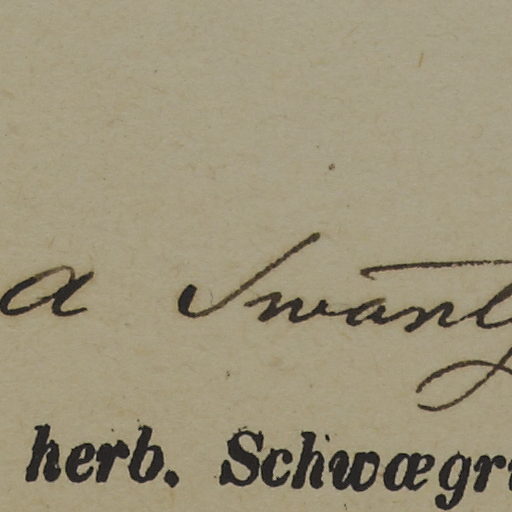 a Swartz
herb. Schwœgri